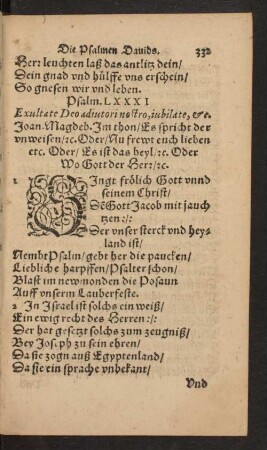 Die Psalmen Dauids.
332
Herr leuchten laß das antlitz dein/
Dein gnad vnd hülffe vns erschein/
So gnesen wir vnd leben.
Psalm. LXXXI
Exultate Deo adiutori nostro, iubilate, &c.
Joan. Magdeb. Im thon/ Es spricht der
vnweisen/ ꝛc. Oder/ Nu frewt euch lieben
etc. Oder/ Es ist das heyl/ ꝛc. Oder
Wo Gott der Her: /ꝛc.
1 SIngt frölich Gott vnnd
seinem Christ/
DeGott Jacob mit jauch
tzen :/:
Der vnser sterck vnd hey-
land ist/
Nembt Psalm/ gebt her die paucken/
Liebliche harpffen/ Psalter schon/
Blast im newmonden die Posaun
Auff vnserm Lauberfeste.
2 In Israel ist solchs ein weiß/
Ein ewig recht des Herren :/:
Der hat gesetzt solchs zum zeugniß/
Bey Joseph zu sein ehren/
Da sie zogn auß Egyptenland/
Da sie ein sprache vnbekant/
Vnd